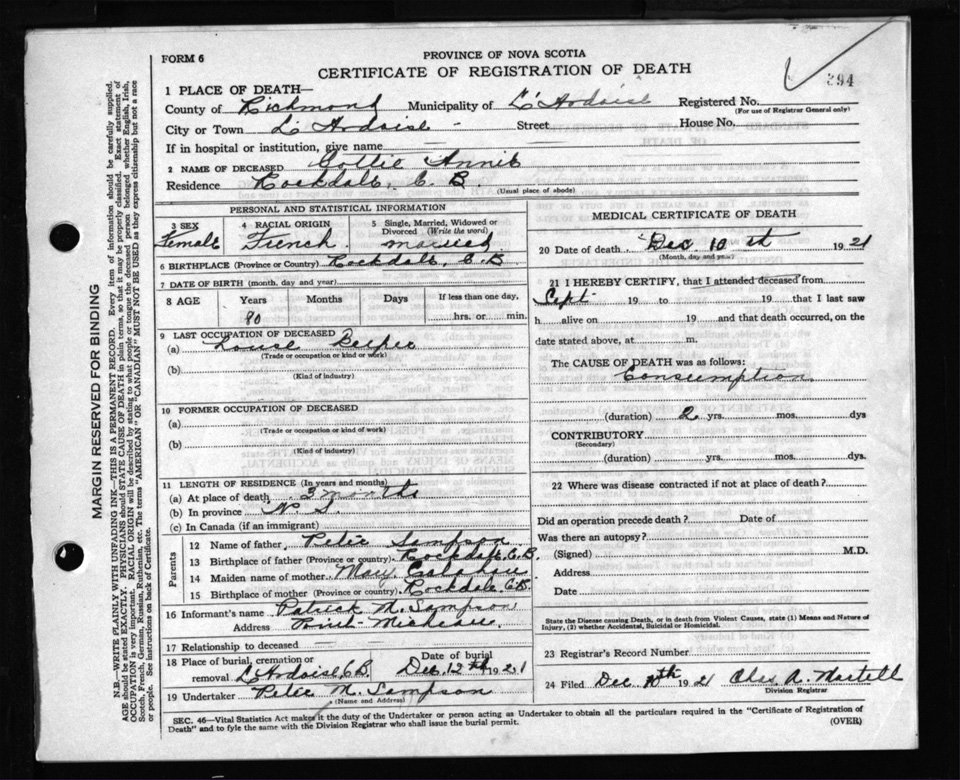 FORM 6
PROVINCE OF NOVA SCOTIA
CERTIFICATE OF REGISTRATION OF DEATH
394
1 PLACE OF DEATH—
County of Richmond Municipality of L'Ardoise Registered No.
(For use of Registrar General only)
City or Town L'Ardoise - Street House No.
If in hospital or institution, give name
2 NAME OF DECEASED Collie Annie
Residence Rockdale, C. B
(Usual place of abode)
PERSONAL AND STATISTICAL INFORMATION
3 SEX 4 RACIAL ORIGIN 5 Single, Married, Widowed or Divorced (Write the word)
Female French. married
6 BIRTHPLACE (Province or Country) Rockdale, C. B.
7 DATE OF BIRTH (month, day and year)
8 AGE Years Months Days If less than one day,
80 hrs. or min.
9 LAST OCCUPATION OF DECEASED
(a) House
(Trade or occupation or kind or work)
(b)
(Kind of industry)
10 FORMER OCCUPATION OF DECEASED
(a)
(Trade or occupation or kind of work)
(b)
(Kind of industry)
11 LENGTH OF RESIDENCE (In years and months)
(a) At place of death 3 months
(b) In province N. S.
(c) In Canada (if an immigrant)
Parents
12 Name of father Sampson
13 Birthplace of father (Province or country) Rockdale, C. B.
14 Maiden name of mother Mary
15 Birthplace of mother (Province or country) Rockdale C.B.
16 Informant's name Patrick M. Sampson
Address
17 Relationship to deceased
18 Place of burial, cremation or removal L'Ardoise C.B. Date of burial Dec. 12th 1921
19 Undertaker M. Sampson
(Name and Address)
MEDICAL CERTIFICATE OF DEATH
20 Date of death Dec 10th 1921
(Month, day and year)
21 I HEREBY CERTIFY, that I attended deceased from
19 to 19 that I last saw
h alive on 19 and that death occurred, on
date stated above, at m.
The CAUSE OF DEATH was as follows:
Consumption
(duration) 2 yrs. mos. dys
CONTRIBUTORY
(Secondary)
(duration) yrs. mos. dys
22 Where was disease contracted if not at place of death?
Did an operation precede death? Date of
Was there an autopsy?
(Signed) M.D.
Address
Date
State the Disease causing Death, or in death from Violent Causes, state (1) Means and Nature of
Injury, (2) whether Accidental, Suicidal or Homicidal.
23 Registrar's Record Number
24 Filed Dec 1921 Martell
Division Registrar
SEC. 46—Vital Statistics Act makes it the duty of the Undertaker or person acting as Undertaker to obtain all the particulars required in the "Certificate of Registration of
Death" and to fyle the same with the Division Registrar who shall issue the burial permit.
(OVER)
MARGIN RESERVED FOR BINDING
N.B.—WRITE PLAINLY WITH UNFADING INK—THIS IS A PERMANENT RECORD. Every item of information should be carefully supplied.
AGE should be stated EXACTLY. PHYSICIANS should STATE CAUSE OF DEATH in plain terms, so that it may be properly classified. Exact statement of
OCCUPATION is very important. RACIAL ORIGIN will be described by stating to what people or tongue the deceased person belonged whether English, Irish,
Scotch, French, German, Russian, Ruthenian, etc. The terms "AMERICAN" OR "CANADIAN" MUST NOT BE USED as they express citizenship but not a race
or people. See instructions on back of Certificate.